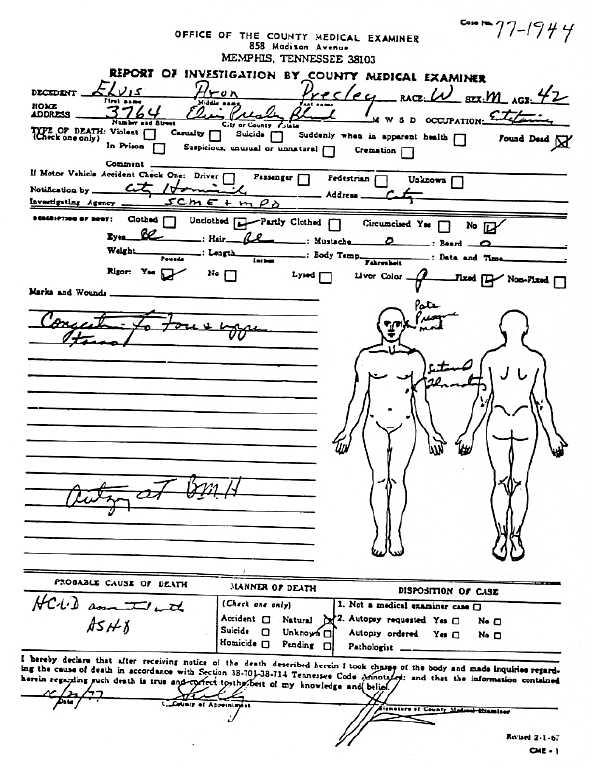 Case No. 77-1944
OFFICE OF THE COUNTY MEDICAL EXAMINER
858 Madison Avenue
MEMPHIS, TENNESSEE 38103
REPORT OF INVESTIGATION BY COUNTY MEDICAL EXAMINER
DECEDENT Elvis Aron Presley RACE: W SEX: M AGE: 42
First name Middle name Last name
HOME ADDRESS 3764 Elvis Presley Blvd M W S D OCCUPATION:
Number and Street City or County State
TYPE OF DEATH: Violent Casualty Suicide Suddenly when in apparent health Found Dead
(Check one only) In Prison Suspicious, unusual or unnatural Cremation
Comment
If Motor Vehicle Accident Check One: Driver Passenger Pedestrian Unknown
Notification by City Address City
Investigating Agency SCME + MPD
DESCRIPTION OF BODY: Clothed Unclothed Partly Clothed Circumcised Yes No
Eyes Bl : Hair Bl : Mustache 0 : Beard 0
Weight : Length : Body Temp. : Date and Time
Pounds Inches Fahrenheit
Rigor: Yes No Lysed Livor Color Fixed Non-Fixed
Marks and Wounds
Congestion to face & upper
autopsy at BMH
PROBABLE CAUSE OF DEATH MANNER OF DEATH DISPOSITION OF CASE
HCVD assoc with
ASHD
(Check one only)
Accident Natural
Suicide Unknown
Homicide Pending
1. Not a medical examiner case
2. Autopsy requested Yes No
Autopsy ordered Yes No
Pathologist
I hereby declare that after receiving notice of the death described herein I took charge of the body and made inquiries regard-
ing the cause of death in accordance with Section 38-701-38-714 Tennessee Code Annotated; and that the information contained
herein regarding such death is true and correct to the best of my knowledge and belief.
Date County of Appointment Signature of County Medical Examiner
Revised 2-1-67
CME - 1